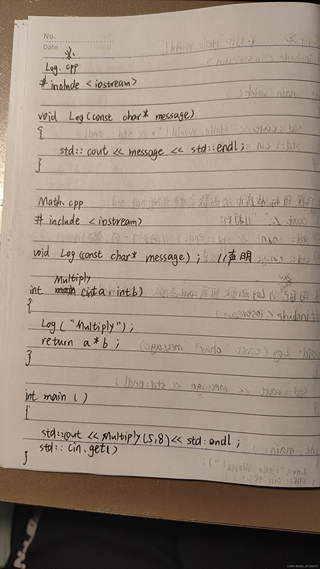 No.
Date
Log.cpp
# include <iostream>
void Log(const char* message)
{
std:: cout << message << std::endl;
}
Math.cpp
# include <iostream>
void Log(const char* message) ; //声明
Multiply
int (int a, int b)
{
Log ("Multiply");
return a*b ;
}
int main ()
{
std::cout << Multiply(5,8) << std::endl ;
std:: cin.get()
}